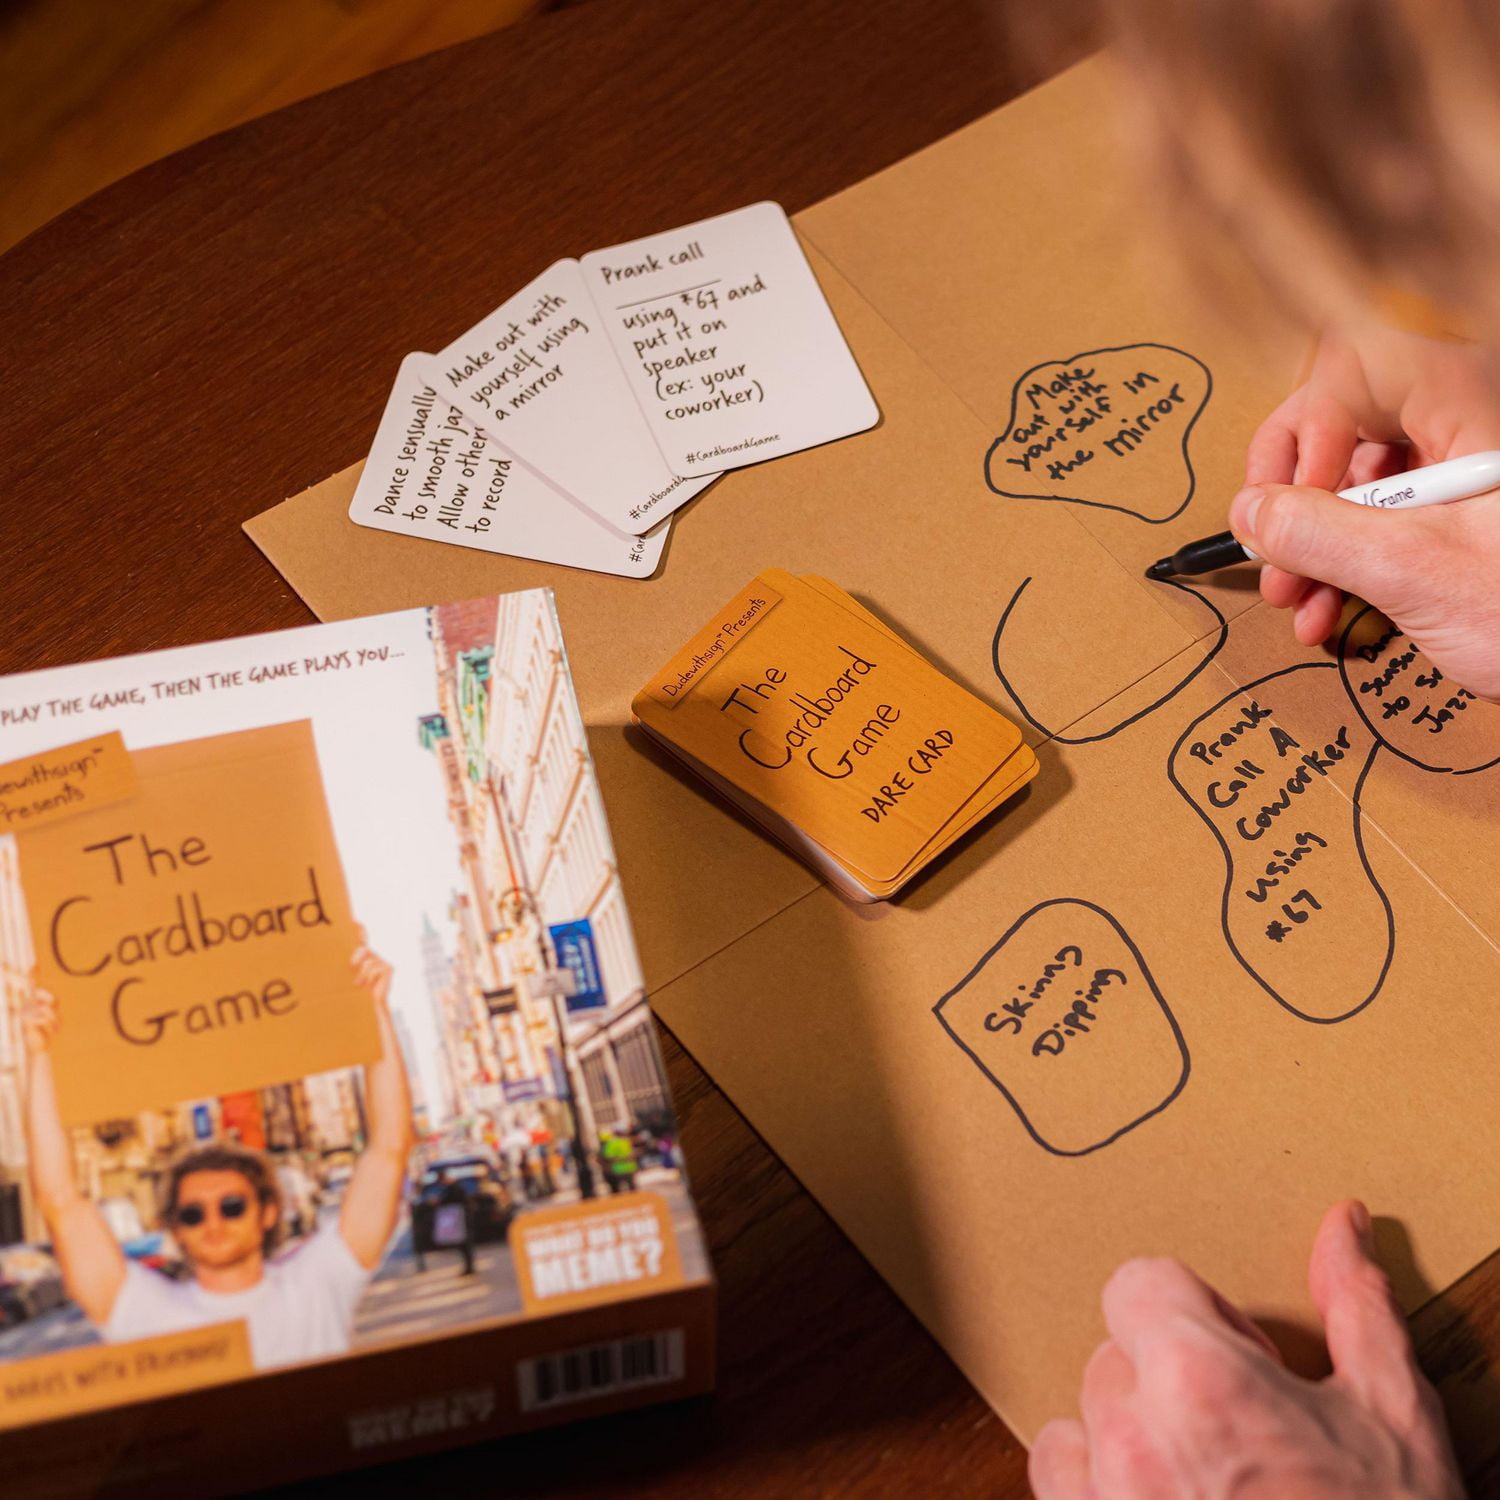 Prank call
using *67 and
put it on
speaker
(ex: your
coworker)
#CardboardGame
Make out with
yourself using
a mirror
Dance sensually
to smooth
Allow
to record
Make
out with
yourself in
the mirror
Game
Prank
Call A
Coworker
using
*67
to
Jazz
Skining
Dipping
Dudewithsign™ Presents
The
Cardboard
Game
DARE CARD
PLAY THE GAME, THEN THE GAME PLAYS YOU...
Presents
The
Cardboard
Game
WHAT DO YOU
MEME?
WHAT DO YOU
MEME?